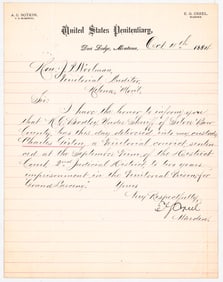 A. C. BOTKIN,
U. S. MARSHAL.
E. G. OZIEL,
WARDEN.
United States Penitentiary,
Deer Lodge, Montana, Oct 10th 1884
Hon. J. P. Woolman
Territorial Auditor,
Helena, Mont.
Sir:
I have the honor to inform you
that R. G. Borden, Under Sheriff of Silver Bow
County has this day delivered into my custody
Charles, a Territorial convict sentenc-
ed at the September Term of the District
Court 2nd Judicial District to two years
imprisonment in the Territorial Prison for
"Grand Larceny"
Yours
Very Respectfully,
Warden